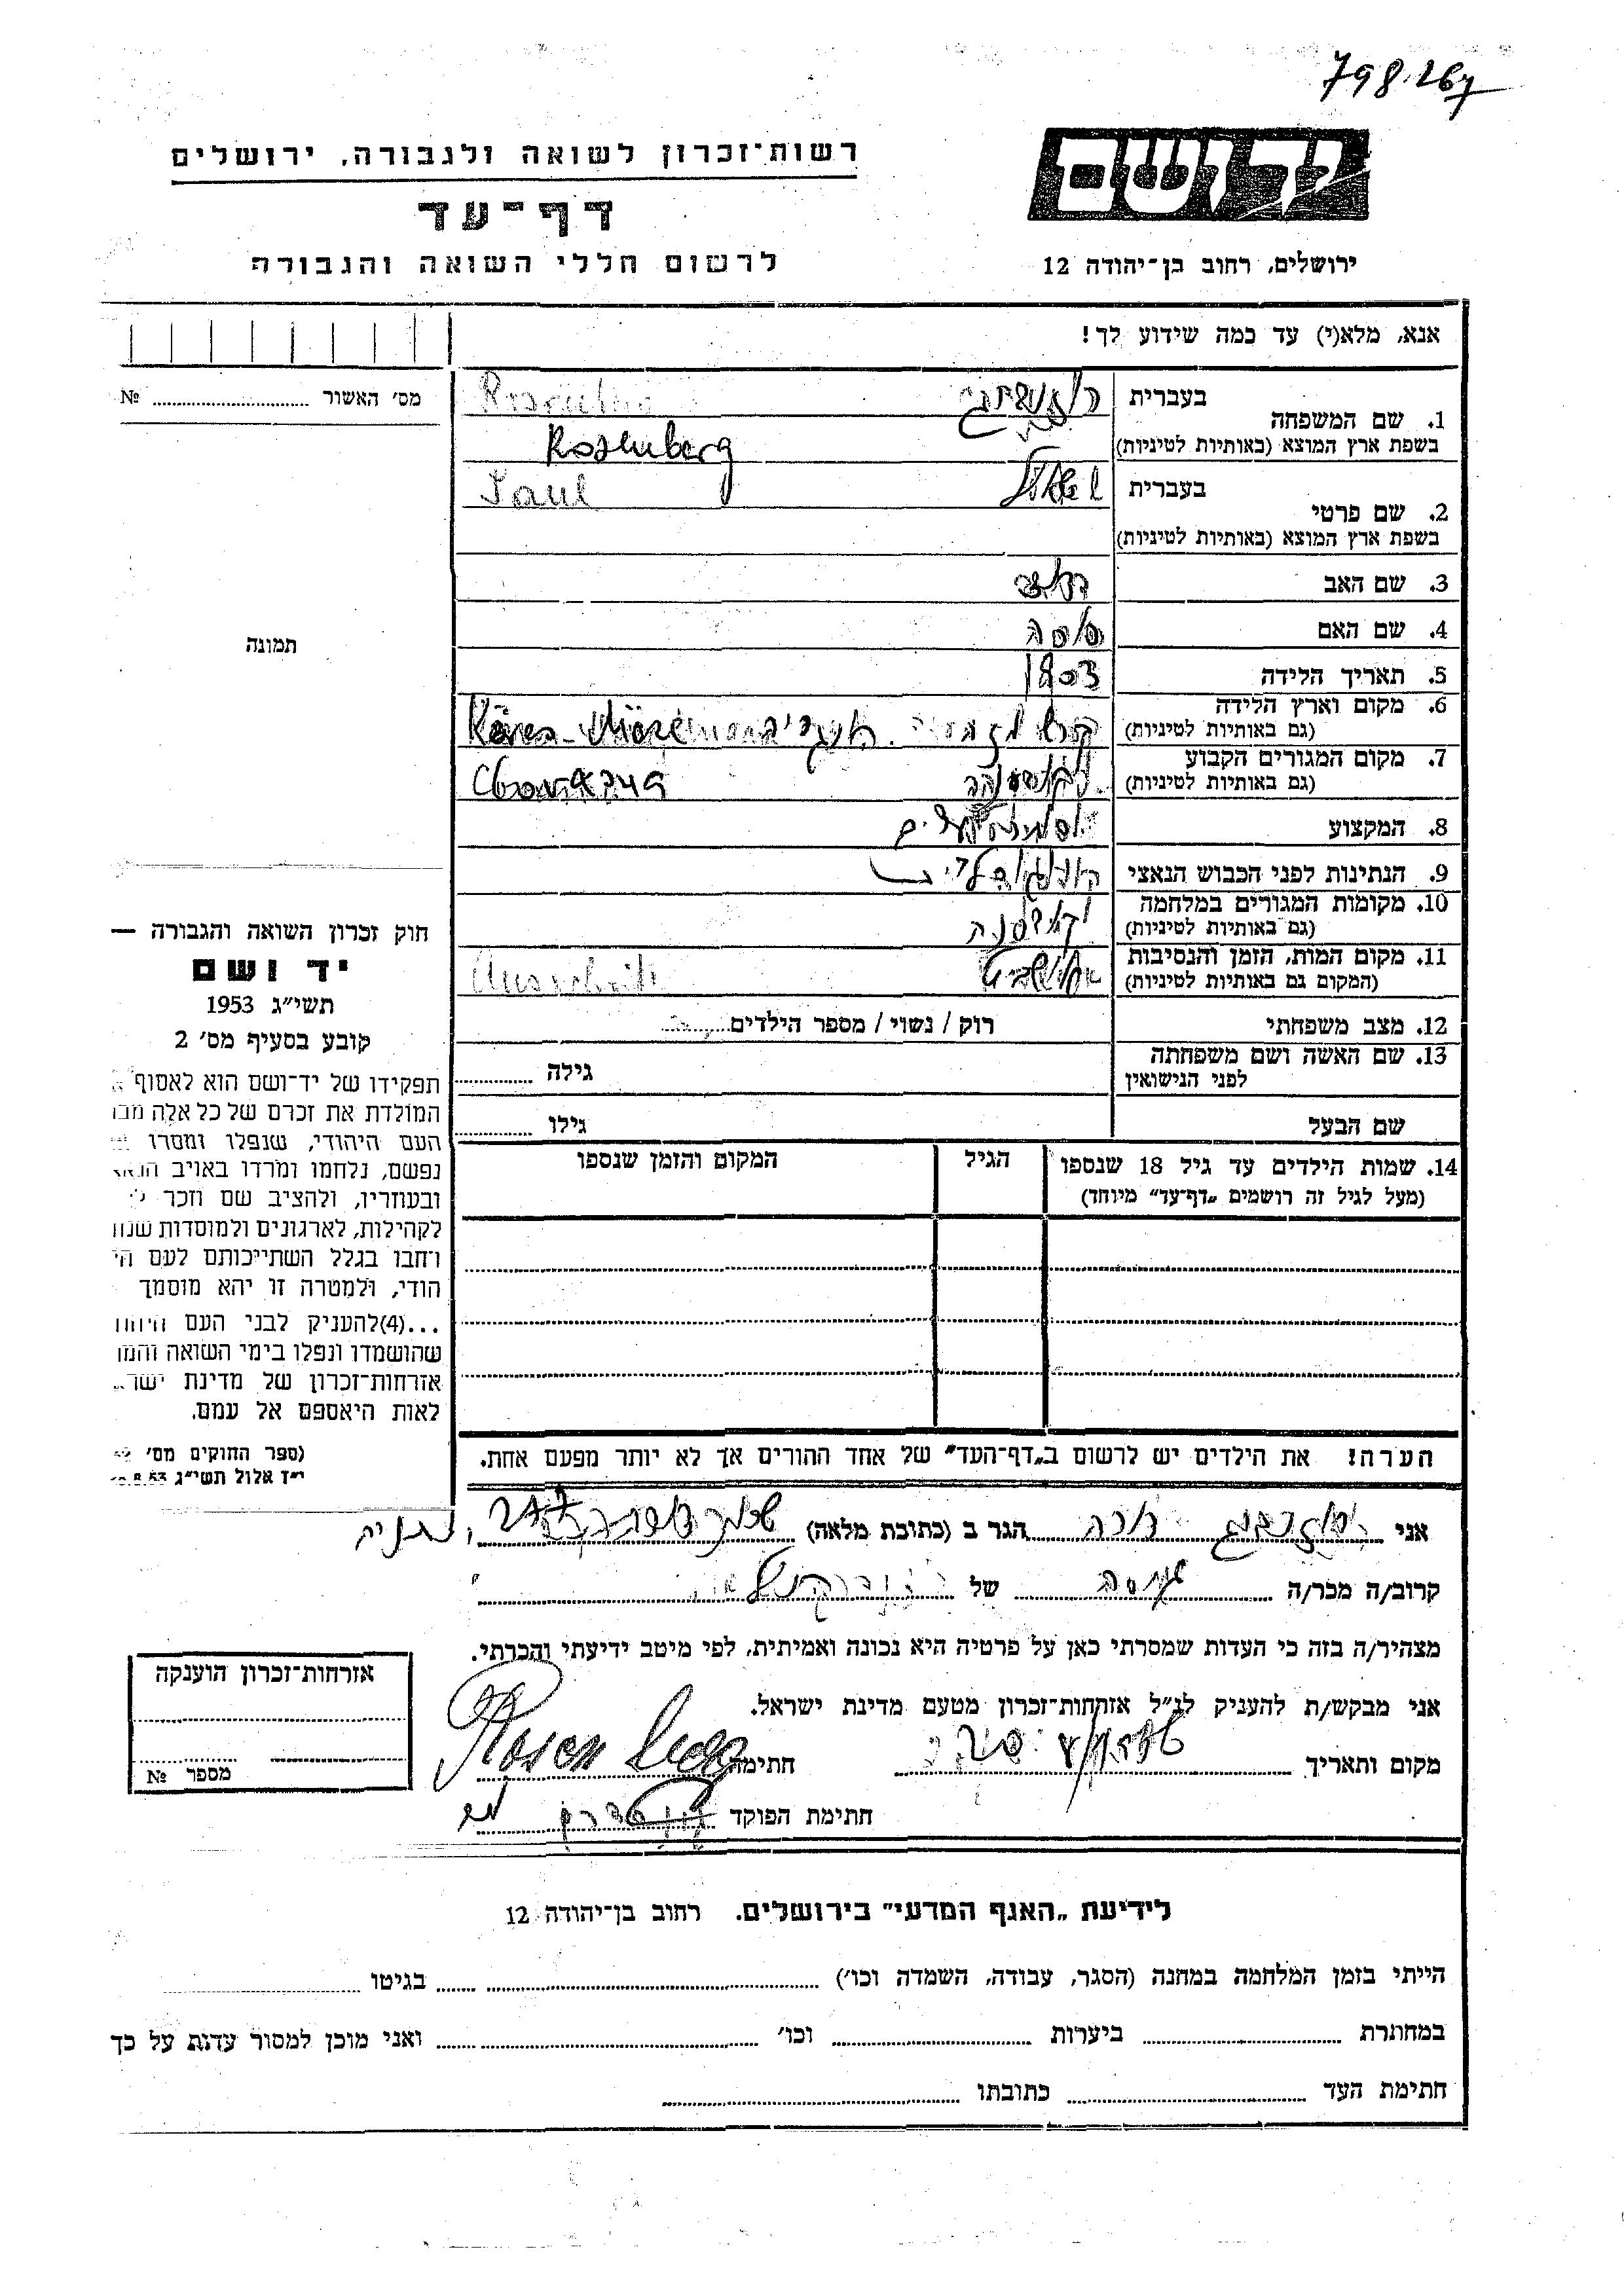 798.267
רשות־זכרון לשואה ולגבורה, ירושלים
דף־עד
לרשום חללי השואה והגבורה
יד ושם
ירושלים, רחוב בן־יהודה 12
אנא, מלא(י) עד כמה שידוע לך!
מס' האשור № 
תמונה
1. שם המשפחה
בעברית רוזנברג
בשפת ארץ המוצא (באותיות לטיניות) Rosenberg
2. שם פרטי
בעברית שאול Saul
בשפת ארץ המוצא (באותיות לטיניות)
3. שם האב דוד
4. שם האם
5. תאריך הלידה 1903
6. מקום וארץ הלידה
(גם באותיות לטיניות)
7. מקום המגורים הקבוע
(גם באותיות לטיניות)
8. המקצוע
9. הנתינות לפני הכבוש הנאצי
10. מקומות המגורים במלחמה
(גם באותיות לטיניות)
11. מקום המות, הזמן והנסיבות אושביץ
(המקום גם באותיות לטיניות)
12. מצב משפחתי רוק / נשוי / מספר הילדים
13. שם האשה ושם משפחתה
לפני הנישואין גילה
שם הבעל גילו
14. שמות הילדים עד גיל 18 שנספו הגיל המקום והזמן שנספו
(מעל לגיל זה רושמים „דף־עד" מיוחד)
הערה! את הילדים יש לרשום ב„דף־העד" של אחד ההורים אך לא יותר מפעם אחת.
חוק זכרון השואה והגבורה —
יד ושם
תשי"ג 1953
קובע בסעיף מס' 2
תפקידו של יד־ושם הוא לאסוף
המולדת את זכרם של כל אלה
העם היהודי, שנפלו ומסרו
נפשם, נלחמו ומרדו באויב
ובעוזריו, ולהציב שם וזכר
לקהילות, לארגונים ולמוסדות
וחבו בגלל השתייכותם לעם
הודי, ולמטרה זו יהא מוסמך
...(4)להעניק לבני העם
שהושמדו ונפלו בימי השואה
אזרחות־זכרון של מדינת
לאות היאספם אל עמם.
(ספר החוקים מס'
י"ז אלול תשי"ג
אני רוזנברג הגר ב (כתובת מלאה) נתניה
קרוב/ה מכר/ה של
מצהיר/ה בזה כי העדות שמסרתי כאן על פרטיה היא נכונה ואמיתית, לפי מיטב ידיעתי והכרתי.
אני מבקש/ת להעניק לנ"ל אזרחות־זכרון מטעם מדינת ישראל.
מקום ותאריך חתימה Rosenberg
חתימת הפוקד
אזרחות־זכרון הוענקה
מספר №
לידיעת „האגף המדעי" בירושלים. רחוב בן־יהודה 12
הייתי בזמן המלחמה במחנה (הסגר, עבודה, השמדה וכו') בגיטו
במחתרת ביערות וכו' ואני מוכן למסור עדות על כך
חתימת העד כתובתו